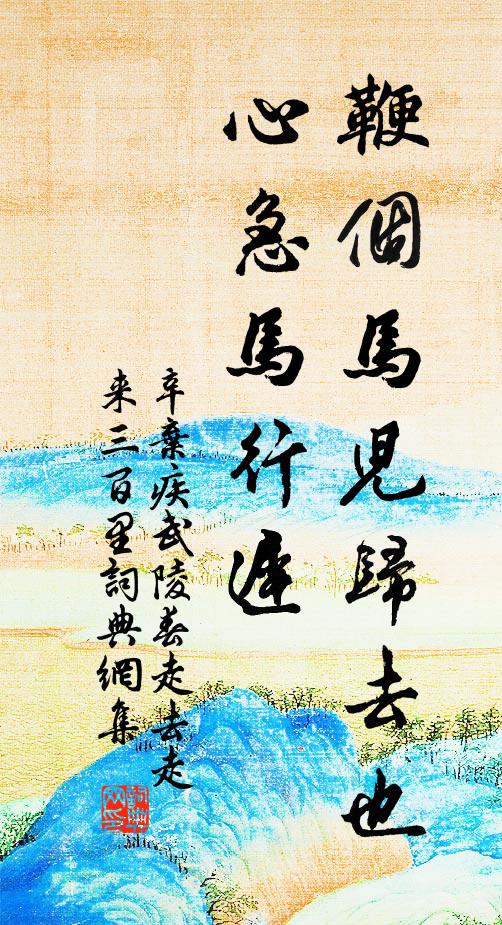 鞭個馬兒歸去也
心急馬行遲
辛棄疾武陵春走去走
来三百里詞典網集